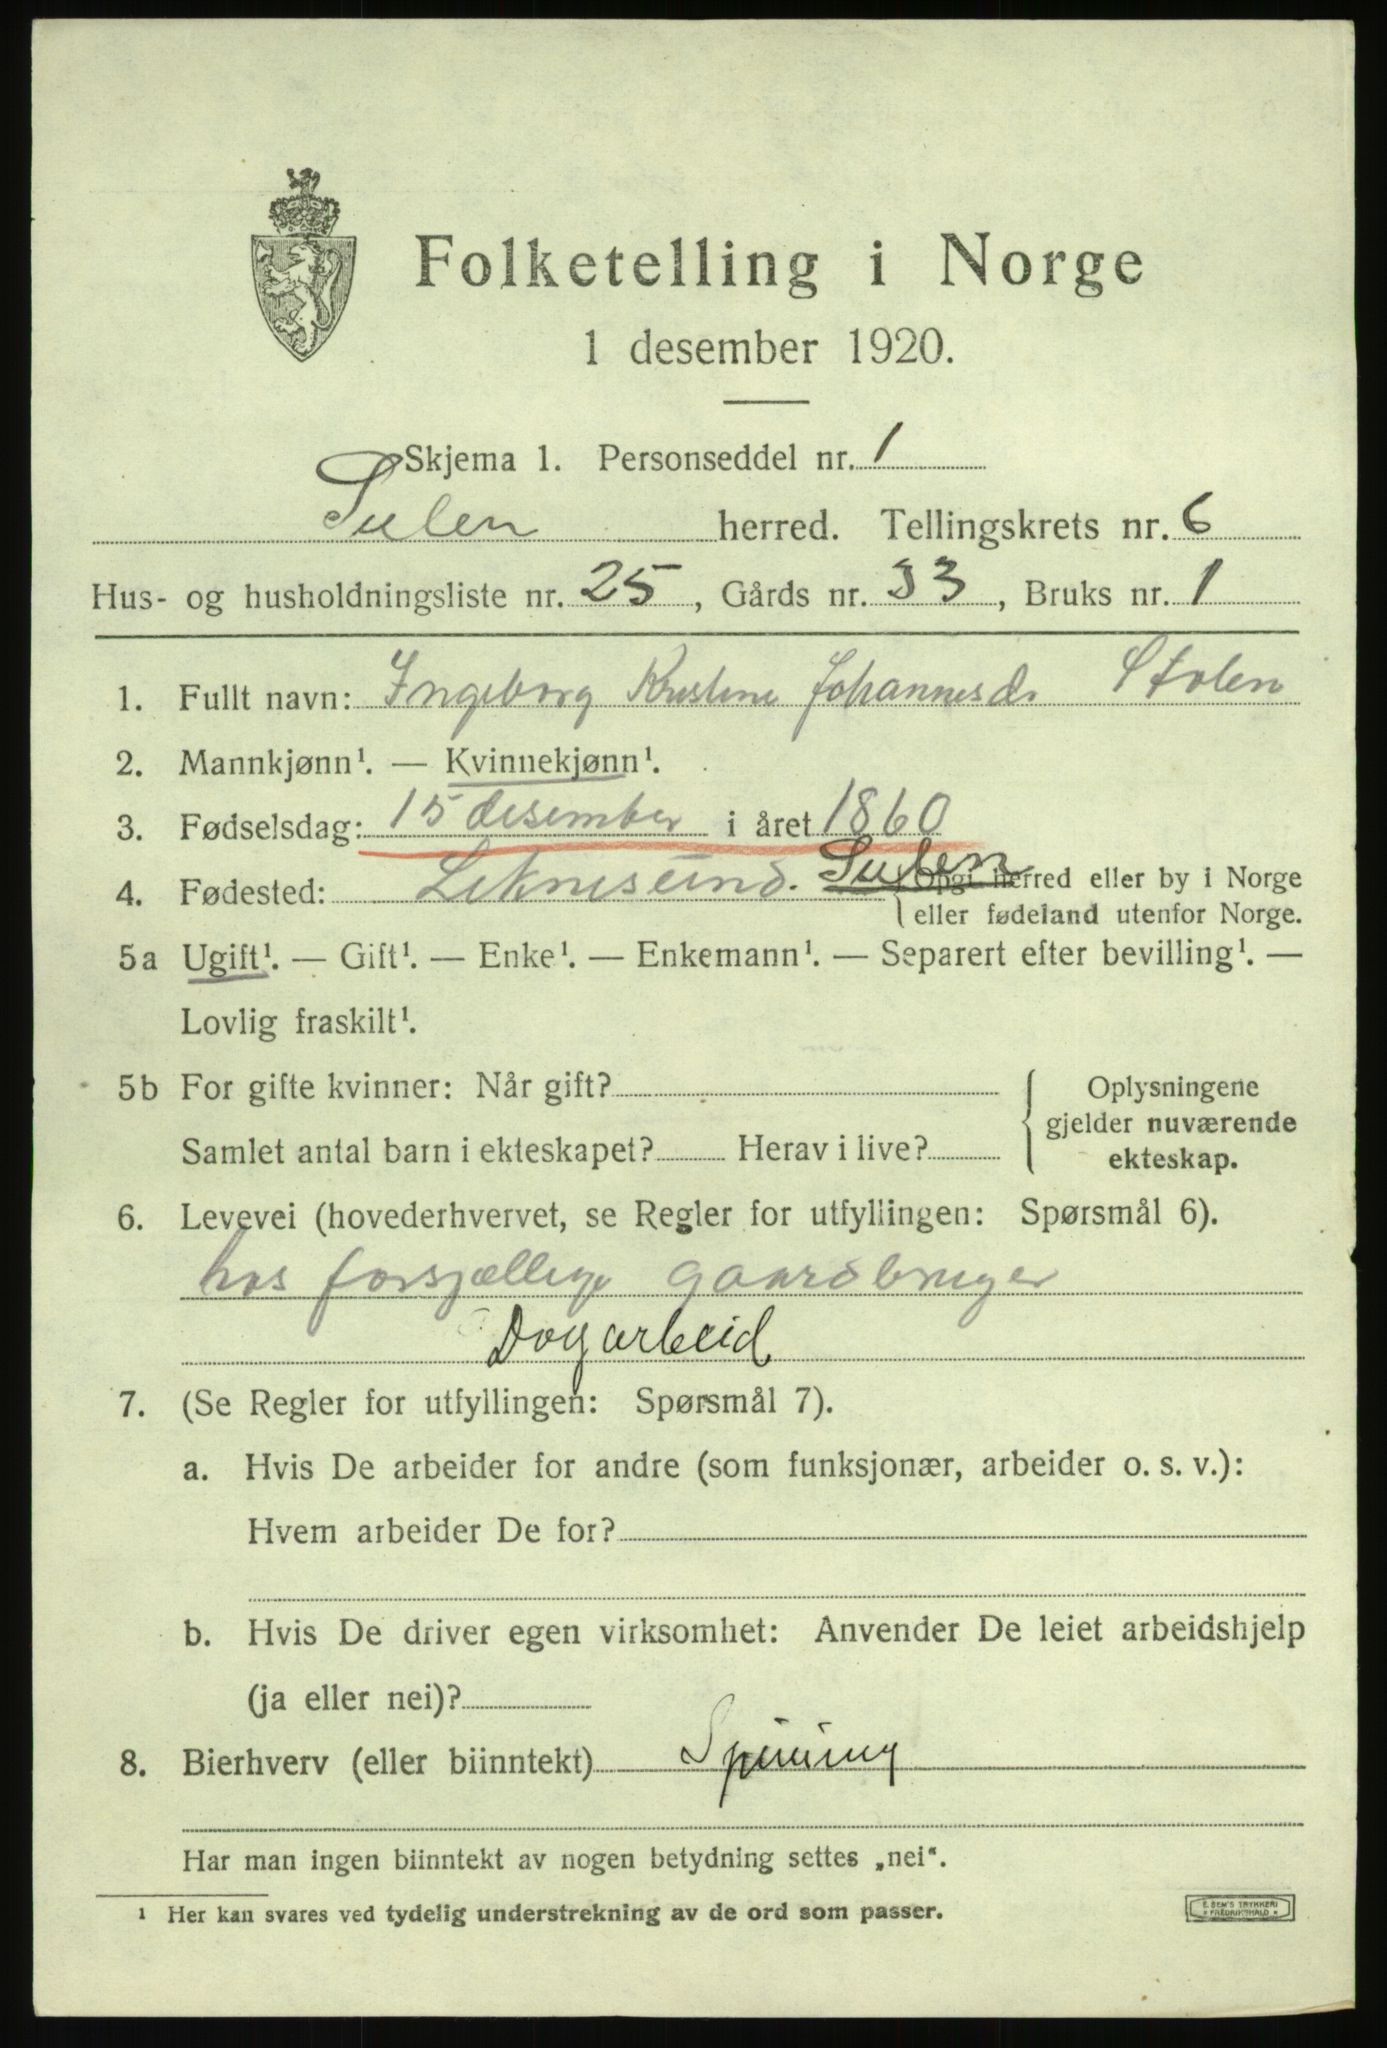 Folketelling i Norge
1 desember 1920.
Skjema 1. Personseddel nr. 1
Sulen herred. Tellingskrets nr. 6
Hus- og husholdningsliste nr. 25, Gårds nr. 33, Bruks nr. 1
1. Fullt navn: Ingeborg Kristine Johannesd. Stolen
2. Mannkjønn¹. — Kvinnekjønn¹.
3. Fødselsdag: 15 desember i året 1860
4. Fødested: Leknesund. Sulen {Opgi herred eller by i Norge
eller fødeland utenfor Norge.
5a Ugift¹. — Gift¹. — Enke¹. — Enkemann¹. — Separert efter bevilling¹. —
Lovlig fraskilt¹.
5b For gifte kvinner: Når gift? { Oplysningene
gjelder nuværende
Samlet antal barn i ekteskapet? Herav i live?
ekteskap.
6. Levevei (hovederhvervet, se Regler for utfyllingen: Spørsmål 6).
hos forsjællige gaardbruger
Dogarbeid
7. (Se Regler for utfyllingen: Spørsmål 7).
a. Hvis De arbeider for andre (som funksjonær, arbeider o. s. v.):
Hvem arbeider De for?
b. Hvis De driver egen virksomhet: Anvender De leiet arbeidshjelp
(ja eller nei)?
8. Bierhverv (eller biinntekt) Spinning
Har man ingen biinntekt av nogen betydning settes „nei“.
¹ Her kan svares ved tydelig understrekning av de ord som passer.
E. SEM'S TRYKKERI
* FREDRIKSHALD *